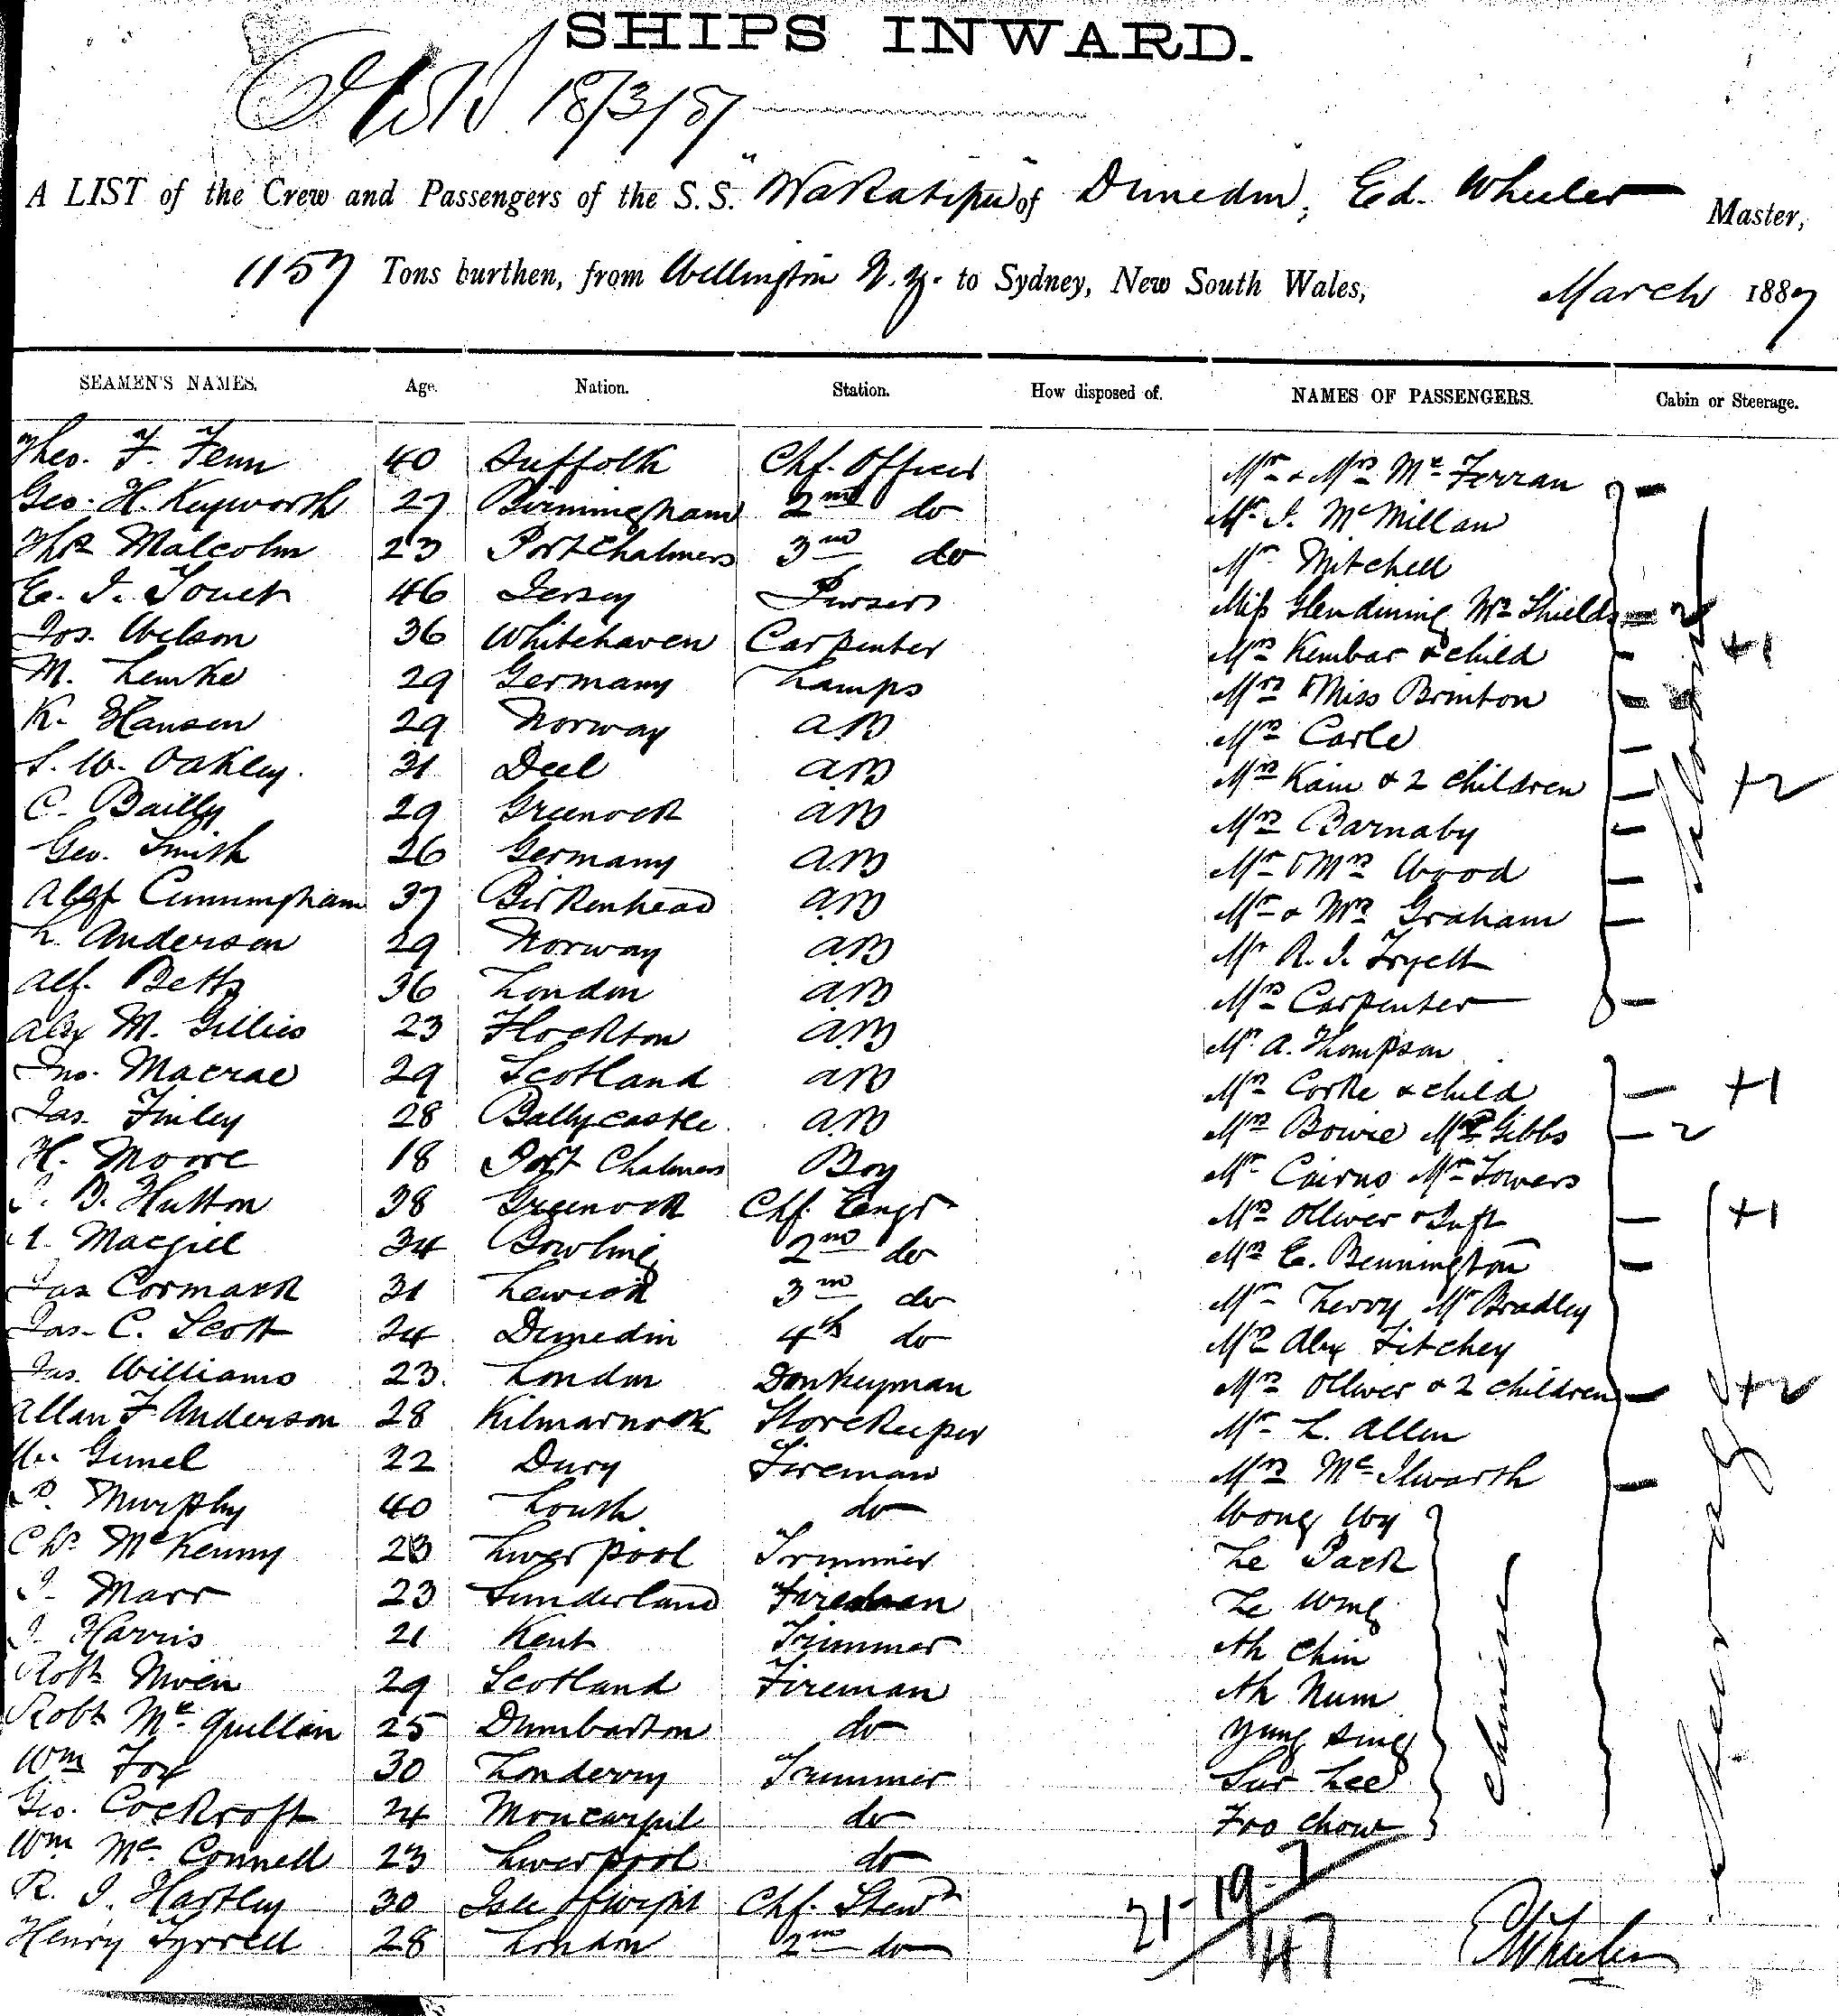 SHIPS INWARD.
18/3/87
A LIST of the Crew and Passengers of the S.S. "Wakatipu" of Dunedin, Ed. Wheeler Master,
1157 Tons burthen, from Wellington N.Z. to Sydney, New South Wales, March 1887
SEAMEN'S NAMES. Age. Nation. Station. How disposed of. NAMES OF PASSENGERS. Cabin or Steerage.
Theo. F. Fenn 40 Suffolk Chf. Officer Mr & Mrs Mc Ferran
Geo. H. Keyworth 27 Birmingham 2nd do Mr J. McMillan
Thos Malcolm 23 Port Chalmers 3rd do Mr Mitchell
E. J. Touet 46 Jersey Purser Miss Glendining Mrs Shields 2
Jos. Wilson 36 Whitehaven Carpenter Mrs Kembar & child +1
M. Lemke 29 Germany Lamps Mrs & Miss Brinton
K. Hansen 29 Norway AB Mrs Carle
S. W. Oakley 31 Deel AB Mrs Kain & 2 children +2
C. Bailly 29 Greenock AB Mrs Barnaby
Geo. Smith 26 Germany AB Mr & Mrs Wood
Alexr Cunningham 37 Birkenhead AB Mr & Mrs Graham
L. Anderson 29 Norway AB Mr R. J. Tryell
Alf. Betts 36 London AB Mrs Carpenter
Alex M. Gillies 23 Flockton AB Mr A. Thompson
Jno. Macrae 29 Scotland AB Mrs Corke & child +1
Jas. Finley 28 Ballycastle AB Mrs Bowie Mrs Gibbs 2
H. Moore 18 Port Chalmers Boy Mr Cairns Mr Towers
D. Hutton 38 Greenock Chf. Engr Mrs Olliver & Inft +1
Macgill 34 Bowling 2nd do Mrs E. Bennington
Jas Cormack 31 Lerwick 3rd do Mr Lervy Mr Bradley
Jas. C. Scott 24 Dunedin 4th do Mr Alex Fitchey
Jas. Williams 23 London Donkeyman Mrs Olliver & 2 children +2
Allan F Anderson 28 Kilmarnock Storekeeper Mr L. Allen
Gimel 22 Dury Fireman Mrs McIlwarth
P. Murphy 40 Louth do Wong Wy
Chs McKenny 23 Liverpool Trimmer Le Pack
J. Marr 23 Sunderland Fireman Le Wing
J. Harris 21 Kent Trimmer Ah Chin
Robt Niven 29 Scotland Fireman Ah Num
Robt McQuillan 25 Dumbarton do Yung Sing
Wm Fox 30 Londerry Trimmer Sur Lee
Geo. Cockroft 24 do Foo Chow
Wm McConnell 23 Liverpool do
R. J. Hartley 30 Isle of Wight Chf. Stewd
Henry Tyrrell 28 London 2nd do
Saloon
Steerage
Chinese
21-19-7
47
EWheeler